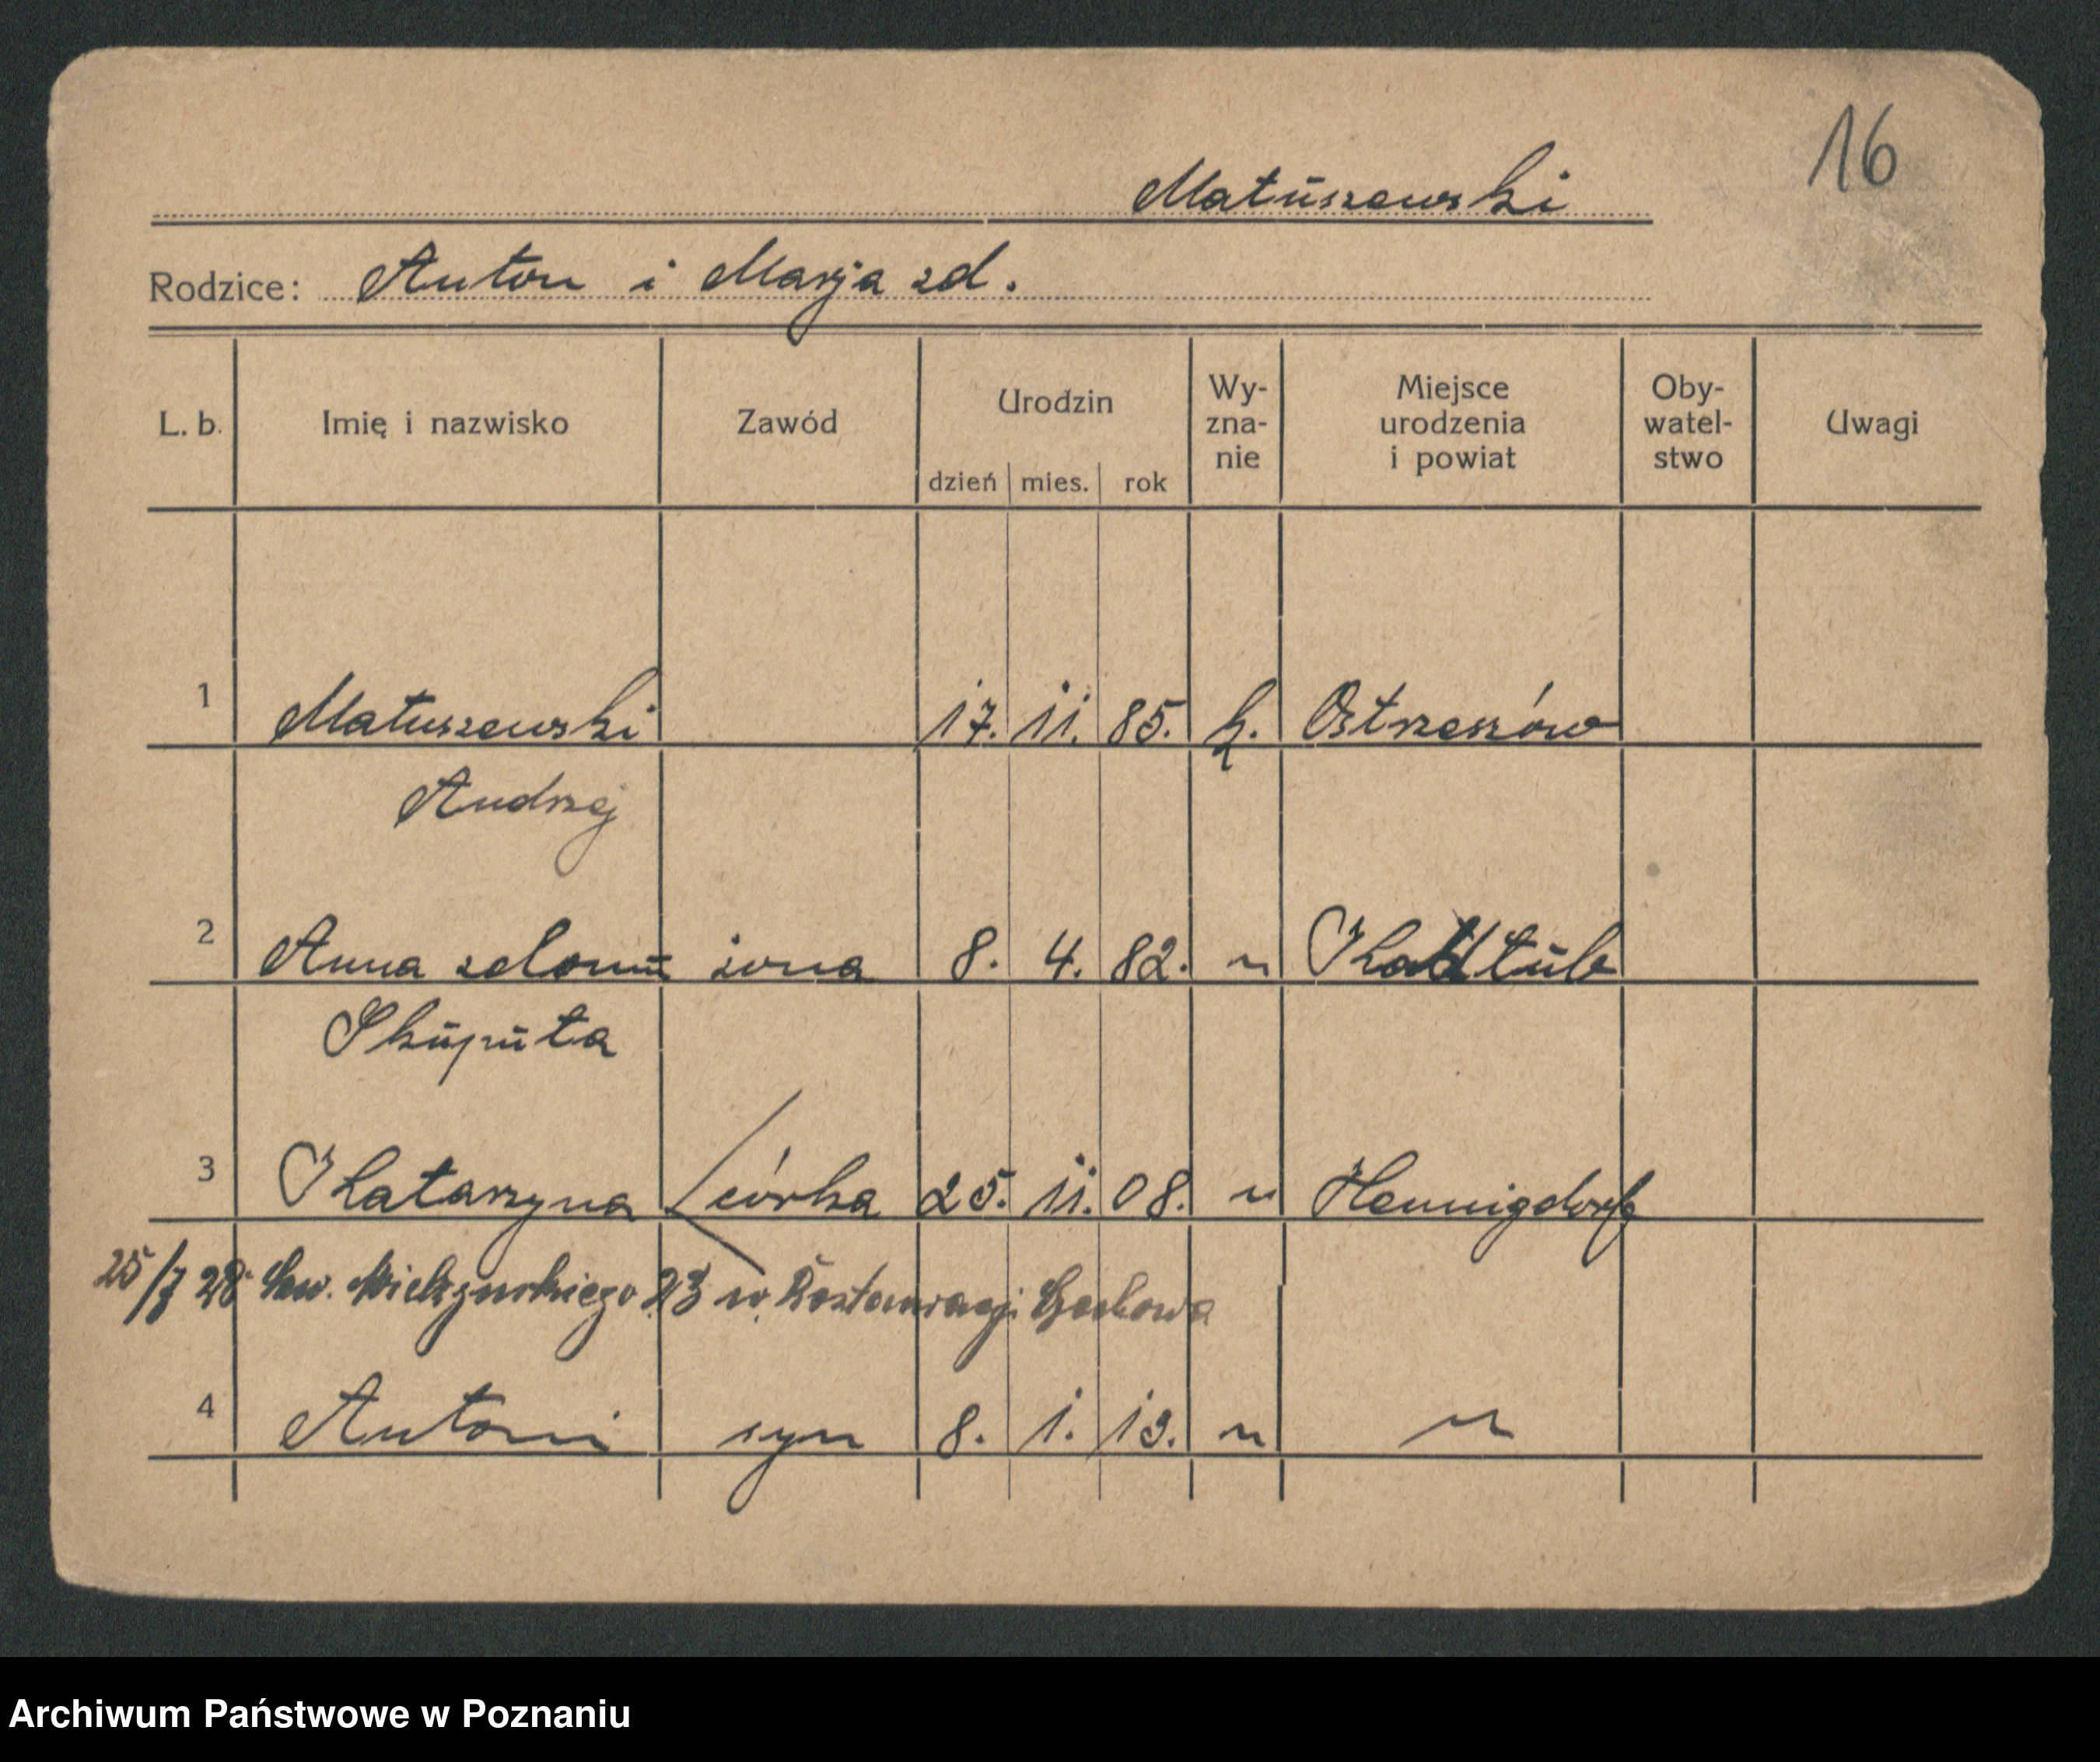 16
Matuszewski
Rodzice: Anton i Marja zd.
L. b. Imię i nazwisko Zawód Urodzin dzień mies. rok Wy-zna-nie Miejsce urodzenia i powiat Oby-watel-stwo Uwagi
1 Matuszewski 17. 11. 85. k. Ostrzeszów
Andrzej
2 Anna żona 8. 4. 82. "
Skuputa
3 Katarzyna córka 25. 11. 08. " Hennigdorf
25/7 28 Św. Mielżyńskiego 23 w Restauracji
4 Antoni syn 8. 1. 13. " "
Archiwum Państwowe w Poznaniu